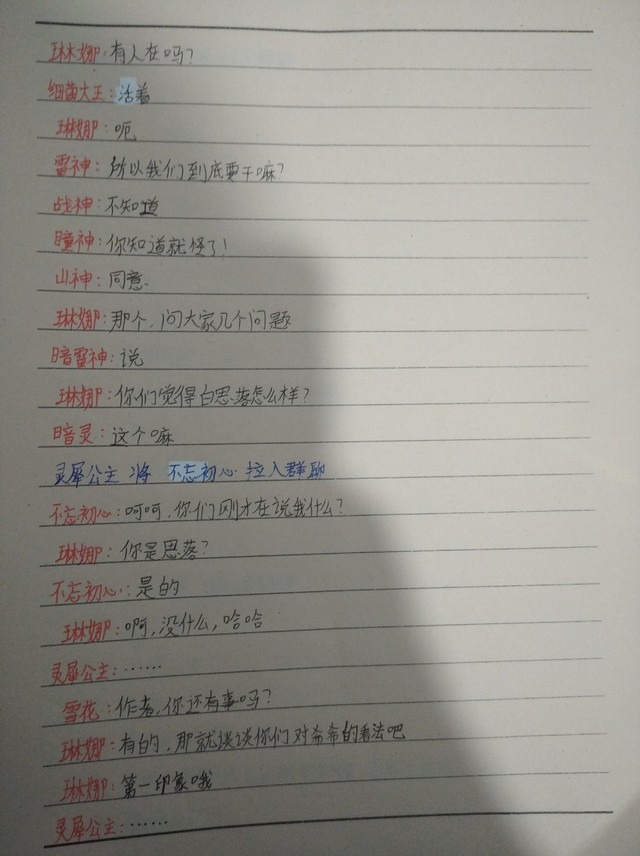 琳娜:有人在吗?
细菌大王:活着
琳娜:呃
雷神:所以我们到底要干嘛?
战神:不知道
瞳神:你知道就怪了!
山神:同意.
琳娜:那个,问大家几个问题
暗雷神:说
琳娜:你们觉得白思落怎么样?
暗灵:这个嘛
灵犀公主 将 不忘初心 拉入群聊
不忘初心:呵呵,你们刚才在说我什么?
琳娜:你是思落?
不忘初心:是的
琳娜:啊,没什么,哈哈
灵犀公主:……
雪花:作者,你还有事吗?
琳娜:有的,那就谈谈你们对希希的看法吧
琳娜:第一印象哦
灵犀公主:……